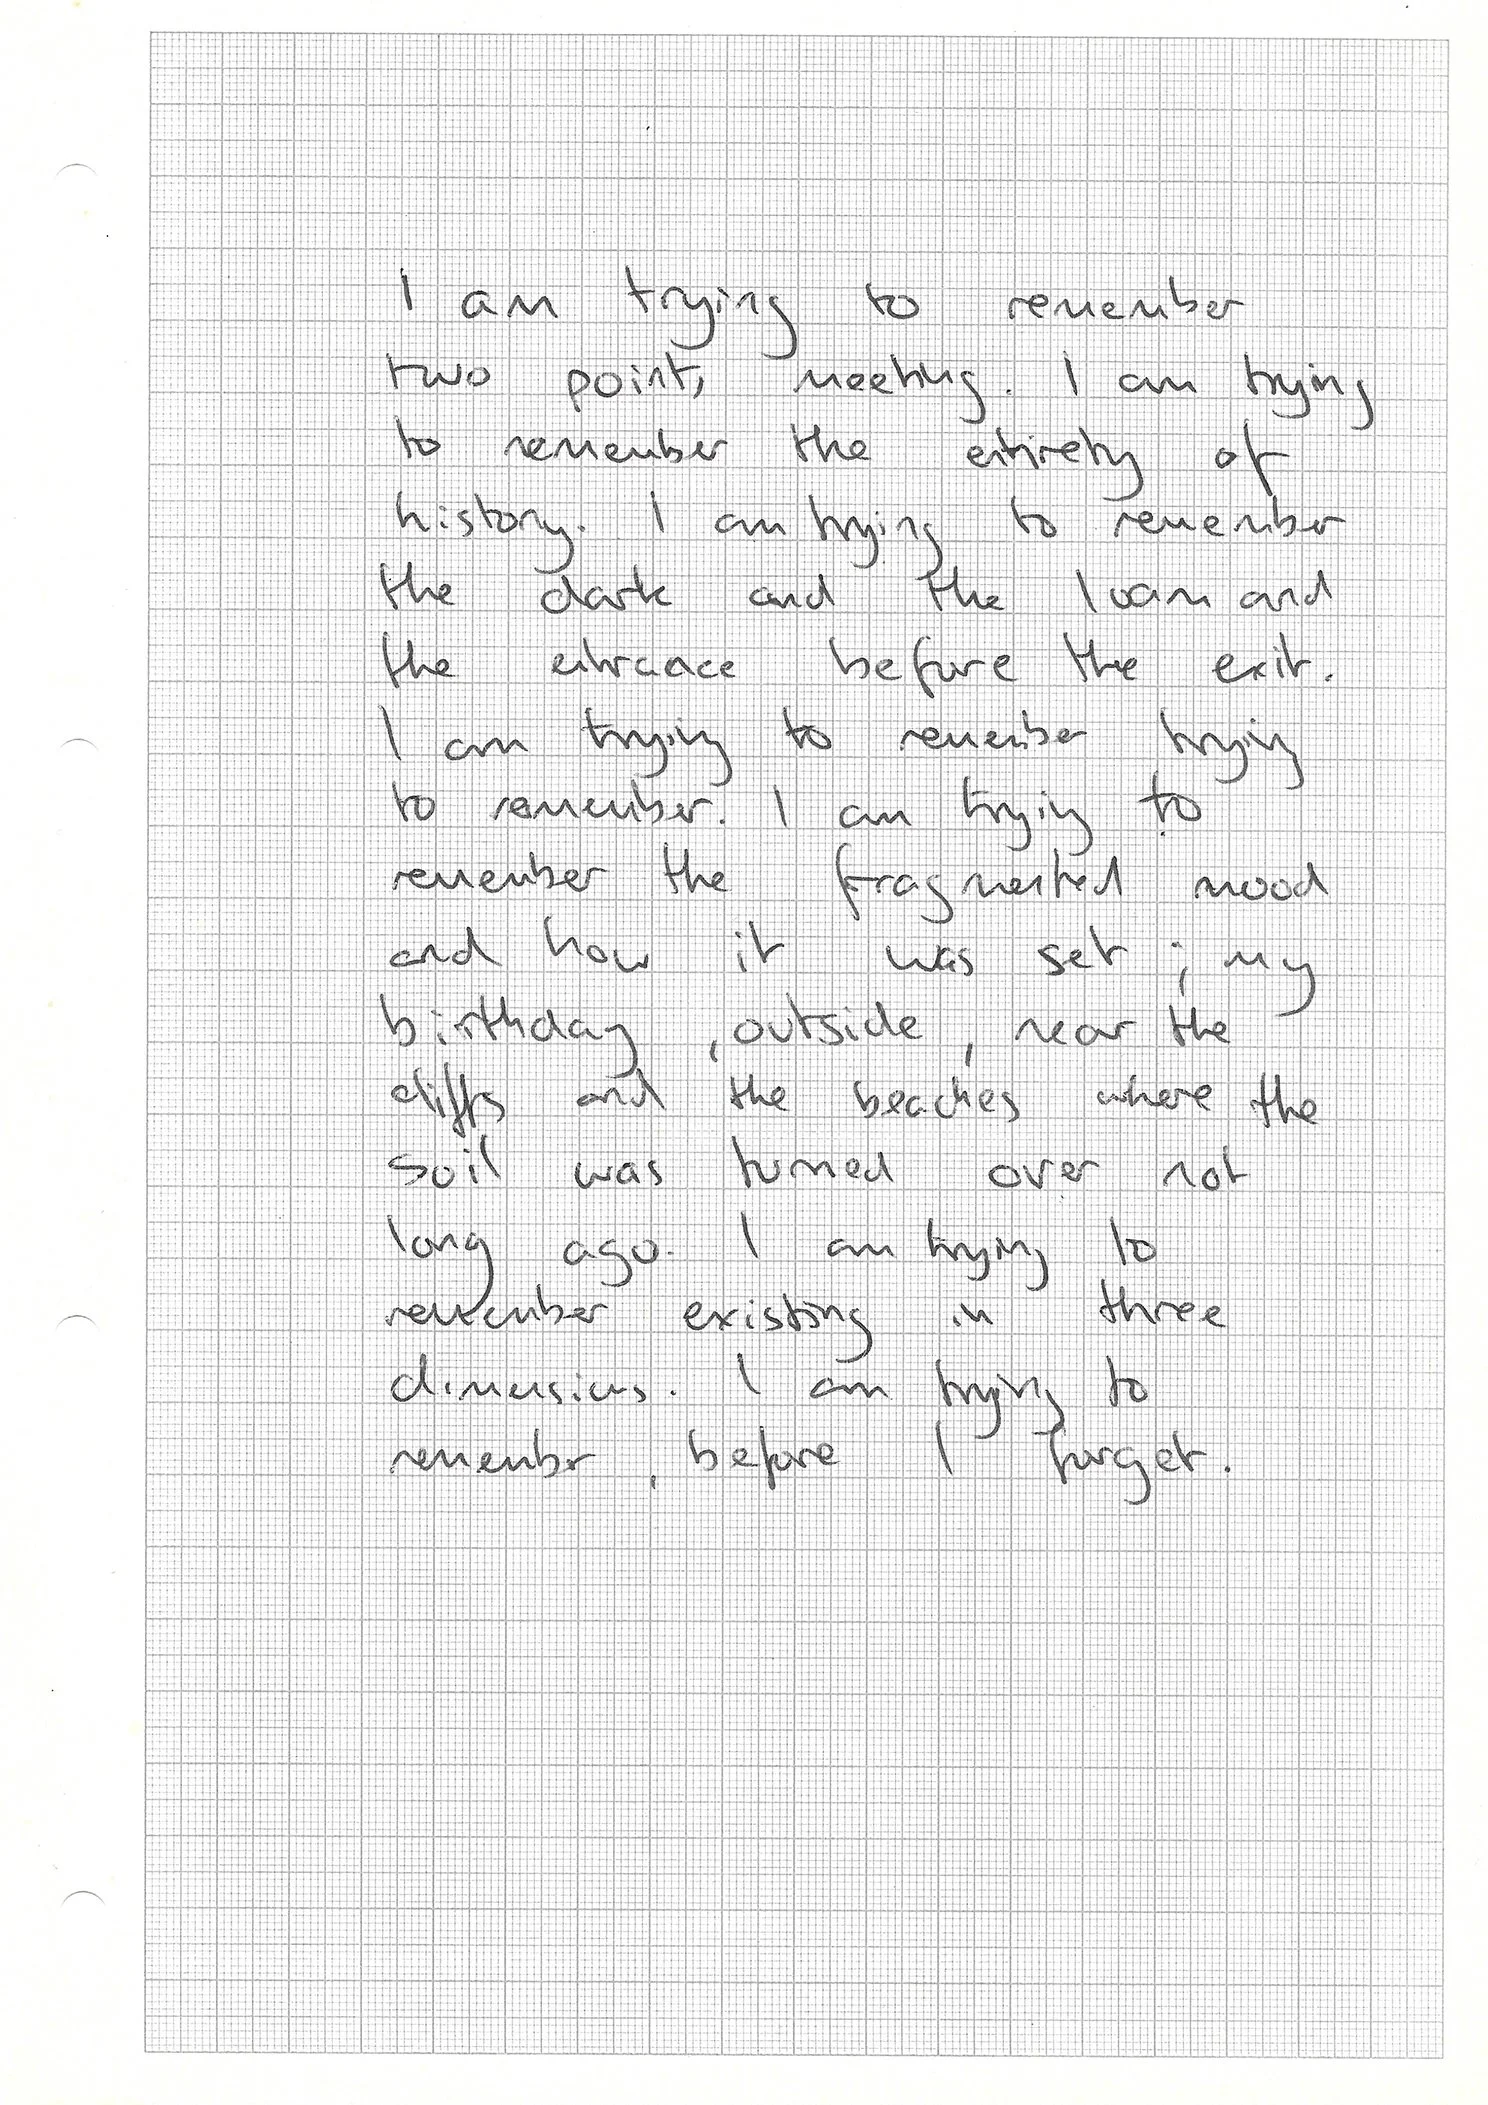 I am trying to remember
two points meeting. I am trying
to remember the entirety of
history. I am trying to remember
the dark and the loam and
the entrance before the exit.
I am trying to remember trying
to remember. I am trying to
remember the fragmented mood
and how it was set; my
birthday, outside, near the
cliffs and the beaches where the
soil was turned over not
long ago. I am trying to
remember existing in three
dimensions. I am trying to
remember, before I forget.